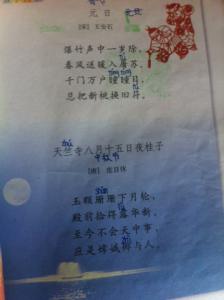 元日 元旦
[宋] 王安石
爆竹声中一岁除，
春风送暖入屠苏。
千门万户曈曈日，
总把新桃换旧符。
天竺寺八月十五日夜桂子
中秋节
[唐] 皮日休
玉颗珊珊下月轮，
殿前拾得露华新。
至今不会天中事，
应是嫦娥掷与人。